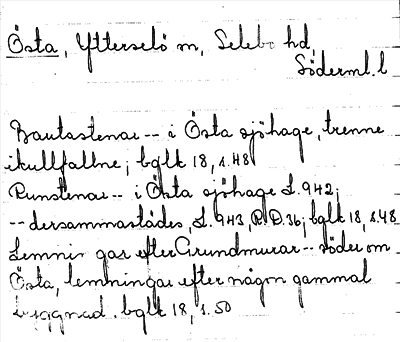 Östa, Ytterselö sn, Selebo hd,
Söderml. l
Bautastenar -- i Östa sjöhage, trenne
ikullfallne; bglk 18, s. 48
Runstenar -- i Östa sjöhage L. 942;
-- dersammastädes, L. 943, R.D. 36; bglk 18, s. 48
Lemningar efter Grundmurar -- söder om
Östa, lemningar efter någon gammal
byggnad. bglk 18, s. 50